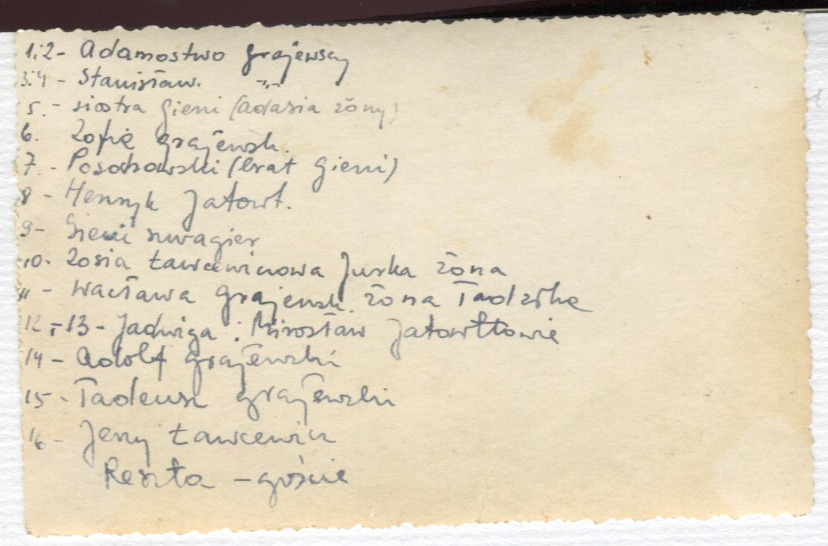 1.2- Adamostwo Grajewscy
3.4 - Stanisław. "
5. - siostra Gieni (Adasia żony)
6. Zofię Grajewsk.
7. - Posochowski (brat Gieni)
8 - Henryk Jatowt.
9- Gieni szwagier
10- Zosia Ławcewiczowa Jurka żona
11 - Wacława Grajewsk. żona Tadzika
12 i 13 - Jadwiga i Mirosław Jatowttowie
14 - Adolf Grajewski
15 - Tadeusz Grajewski
16 - Jerzy Ławcewicz
Reszta - goście